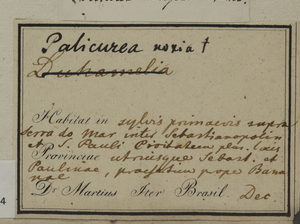 Palicurea noxia †
Duhamelia
Habitat in sylvis primaevis supra
Serra do Mar inter Sebastianopolin
et S. Pauli Civitatem plur. locis
Provinciae utriusque Sebast. et
Paulinae, praesertim prope Bana
nal
Dr. Martius Iter Brasil. Dec.
4